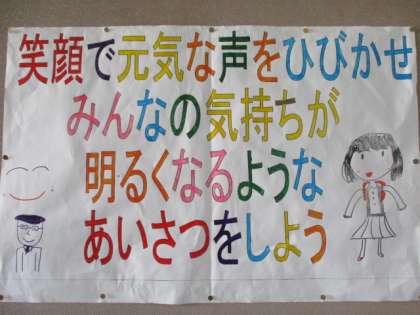 笑顔で元気な声をひびかせ
みんなの気持ちが
明るくなるような
あいさつをしよう